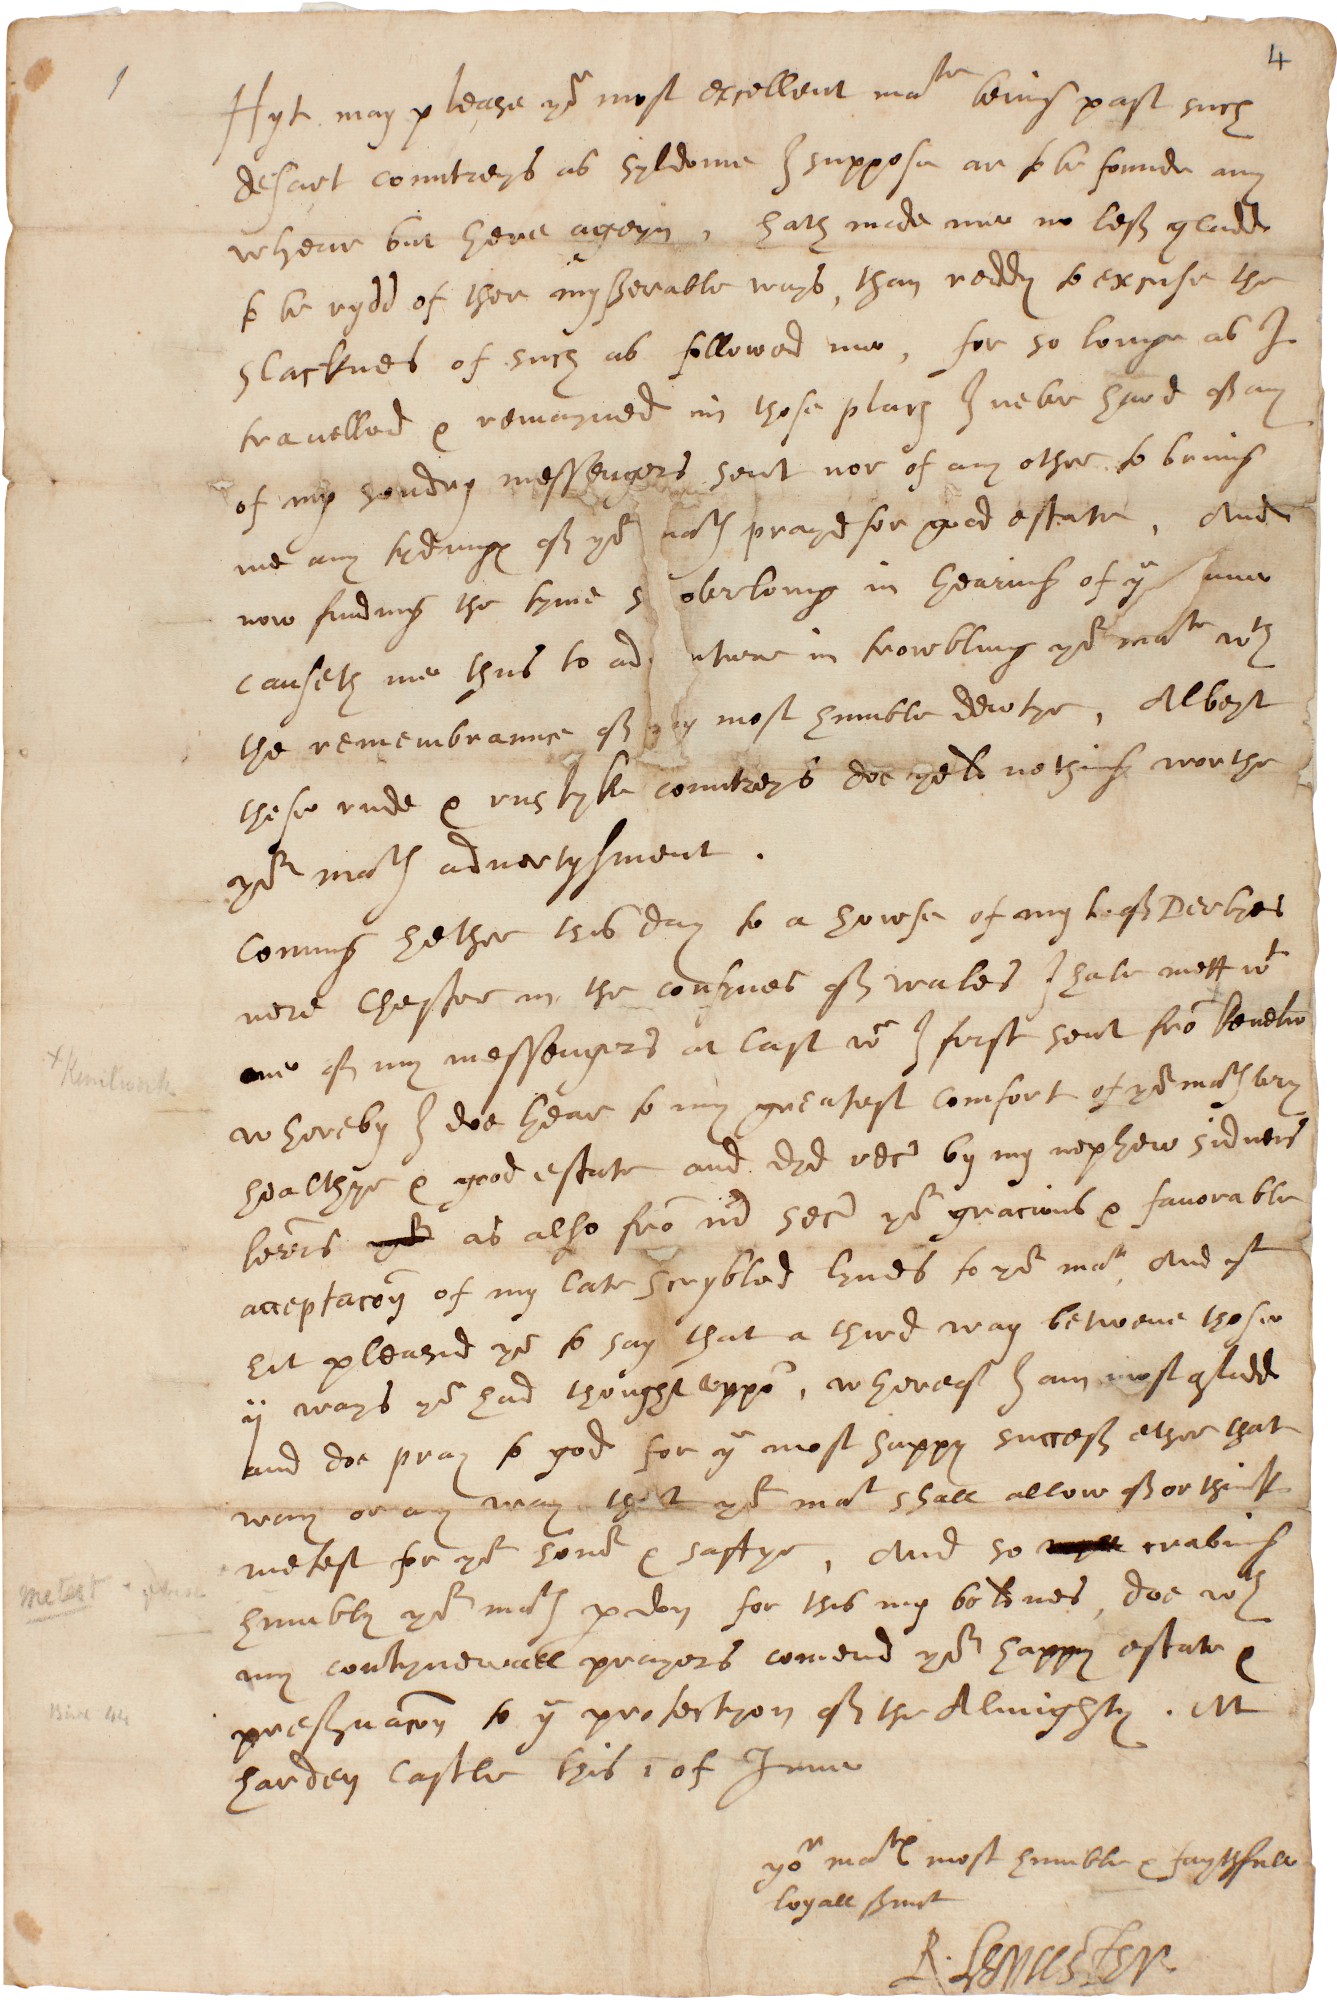 4
Hyt may please yor most excellent matie being past such
desart contreys as syldome I suppose ar to be founde any
whear but here ageyn, hath made me no less gladd
to be rydd of ther mysserable ways, than reddy to excuse the
slacknes of such as followed me, for so longe as I
travelled & remayned in those places I never hard of any
of my sondry messengers sent nor of any other to bring
me any tydings of yor maties prayd for good estate, And
now finding the tyme overlong in hearing of ye same
causeth me thus to ad nture in trowbling yor matie wth
the remembrance of my most humble dewtye, Albeyt
these rude & rustyke contreys doe yeld nothing worthe
yor maties advertysment.
Coming hether this day to a howse of my L. of Derbyes
nere Chester in the confynes of wales I have mett wt
one of my messengers at last wch I first sent fro Kenelw
whereby I doe hear to my greatest comfort of yor maties very
healthye & good estate and dyd rec by my nephew Sidneis
lettrs as also fro mr sec yor gracious & favorable
acceptacon of my late scrybled lynes to yor matie, And yt
hit pleased yor to say that a third way betwene those
ij ways yor had thought uppo, whereof I am most gladd
and doe pray to god for ye most happy success ether that
way or any way that yor matie shall allow of or think
metest for yor honor & saftye, And so craving
humbly yor maties pdon for this my boldnes, doe wth
my contynewall prayers comend yor happy estate &
preservacon to ye protectyon of the Almighty. At
harden Castle this 1 of June
yor maties most humble & faythfull
loyall srvnt
R. Leycester
+ Kenilworth
metest